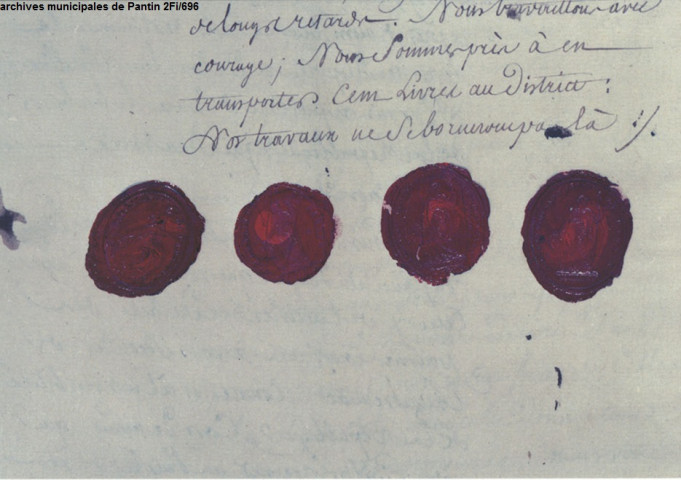 archives municipales de Pantin 2Fi/696
de longs retards. Nous travaillons avec
courage; Nous Sommes prêts à en
transporter Cent Livres au District:
Nos travaux ne Se borneront pas là :/.